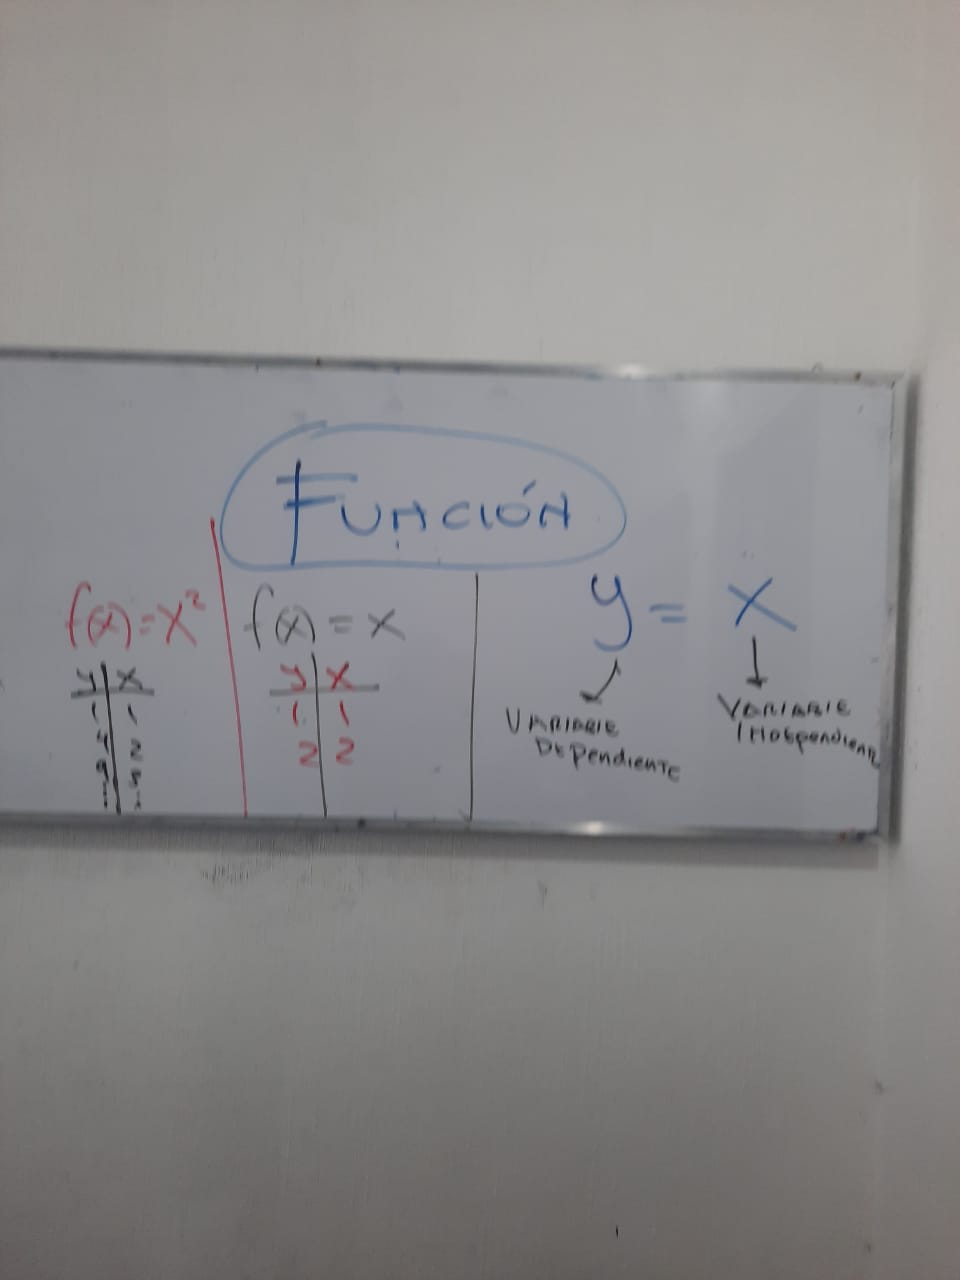 FUNCIÓN
f(x)=x²
y x
1 1
4 2
9 3
f(x) = x
y x
1 1
2 2
y = x
VARIABLE
DEPENDIENTE
VARIABLE
INDEPENDIENTE